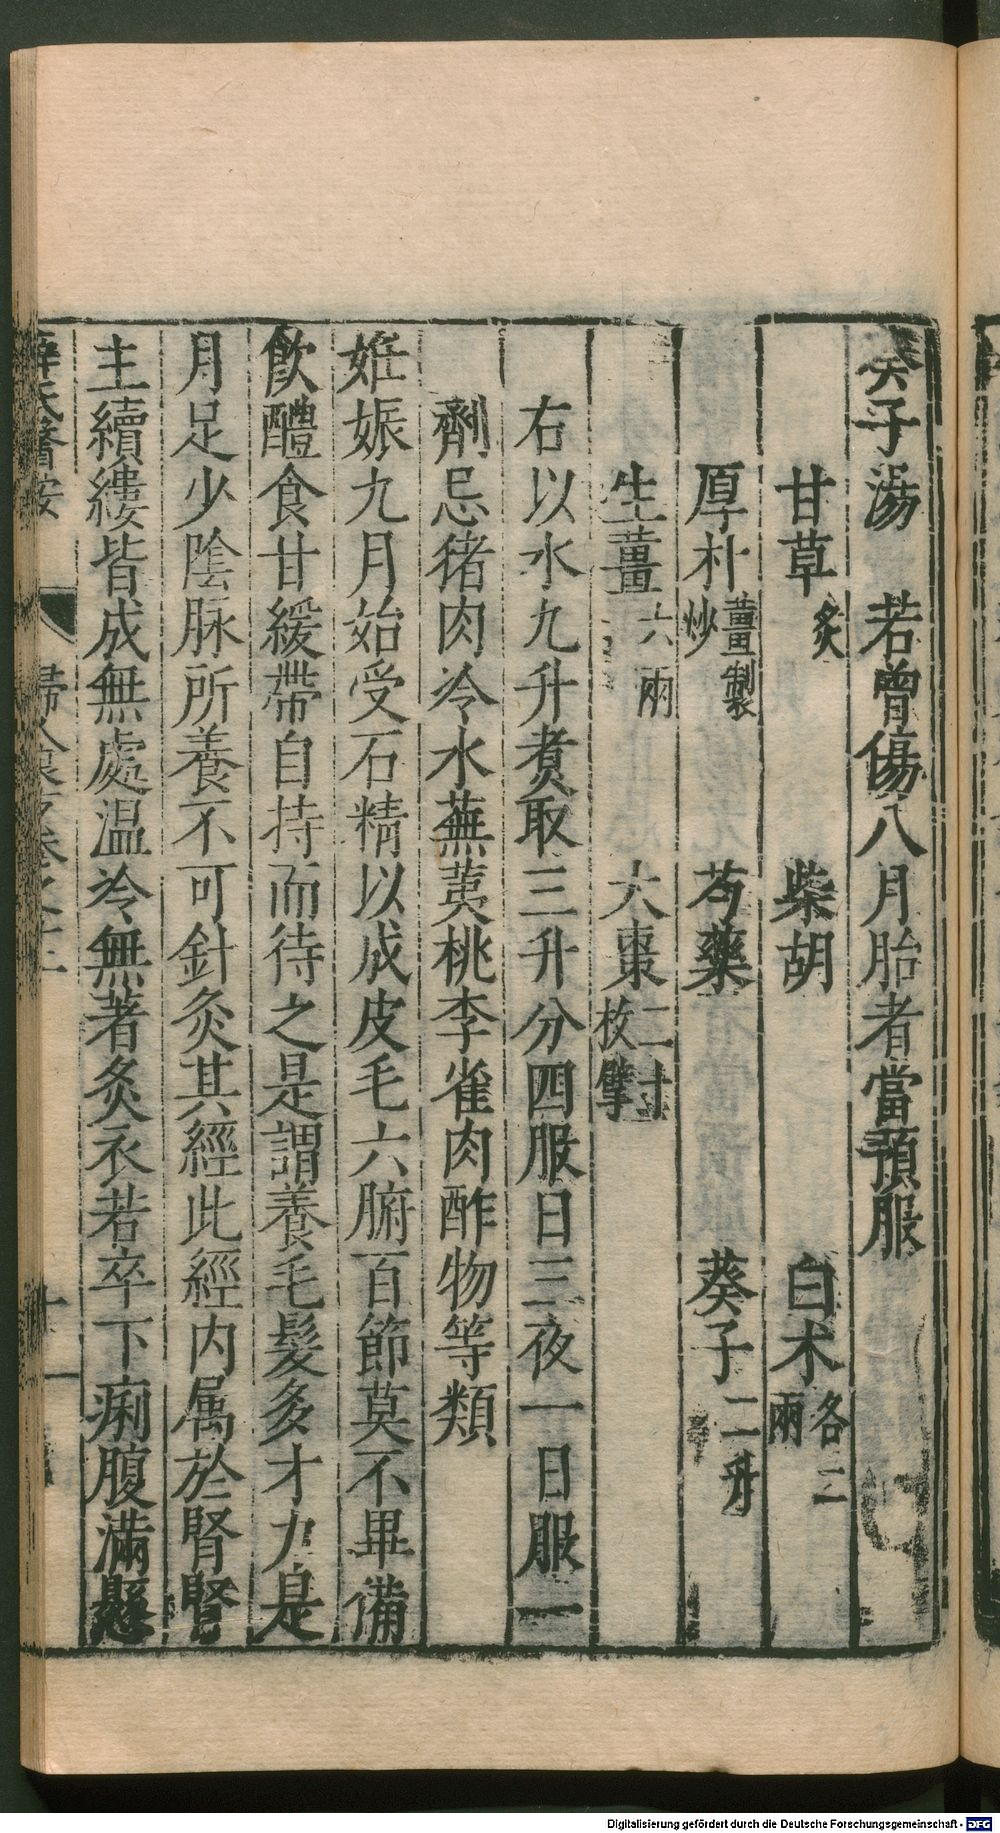 葵子湯　若曾傷八月胎者當預服
甘草炙　柴胡　白术各二兩
厚朴薑製炒　芍藥　葵子二升
生薑六兩　大棗二十枚擘
右以水九升煮取三升分四服日三夜一日服一
劑忌猪肉冷水蕪荑桃李雀肉酢物等類
妊娠九月始受石精以成皮毛六腑百節莫不畢備
飲醴食甘緩帶自持而待之是謂養毛髮多才力是
月足少陰脉所養不可針灸其經此經内属於腎腎
主續縷皆成無處温冷無著炙衣若卒下痢腹滿懸
薛氏醫按　婦人良方卷之十二　十一
Digitalisierung gefördert durch die Deutsche Forschungsgemeinschaft - DFG